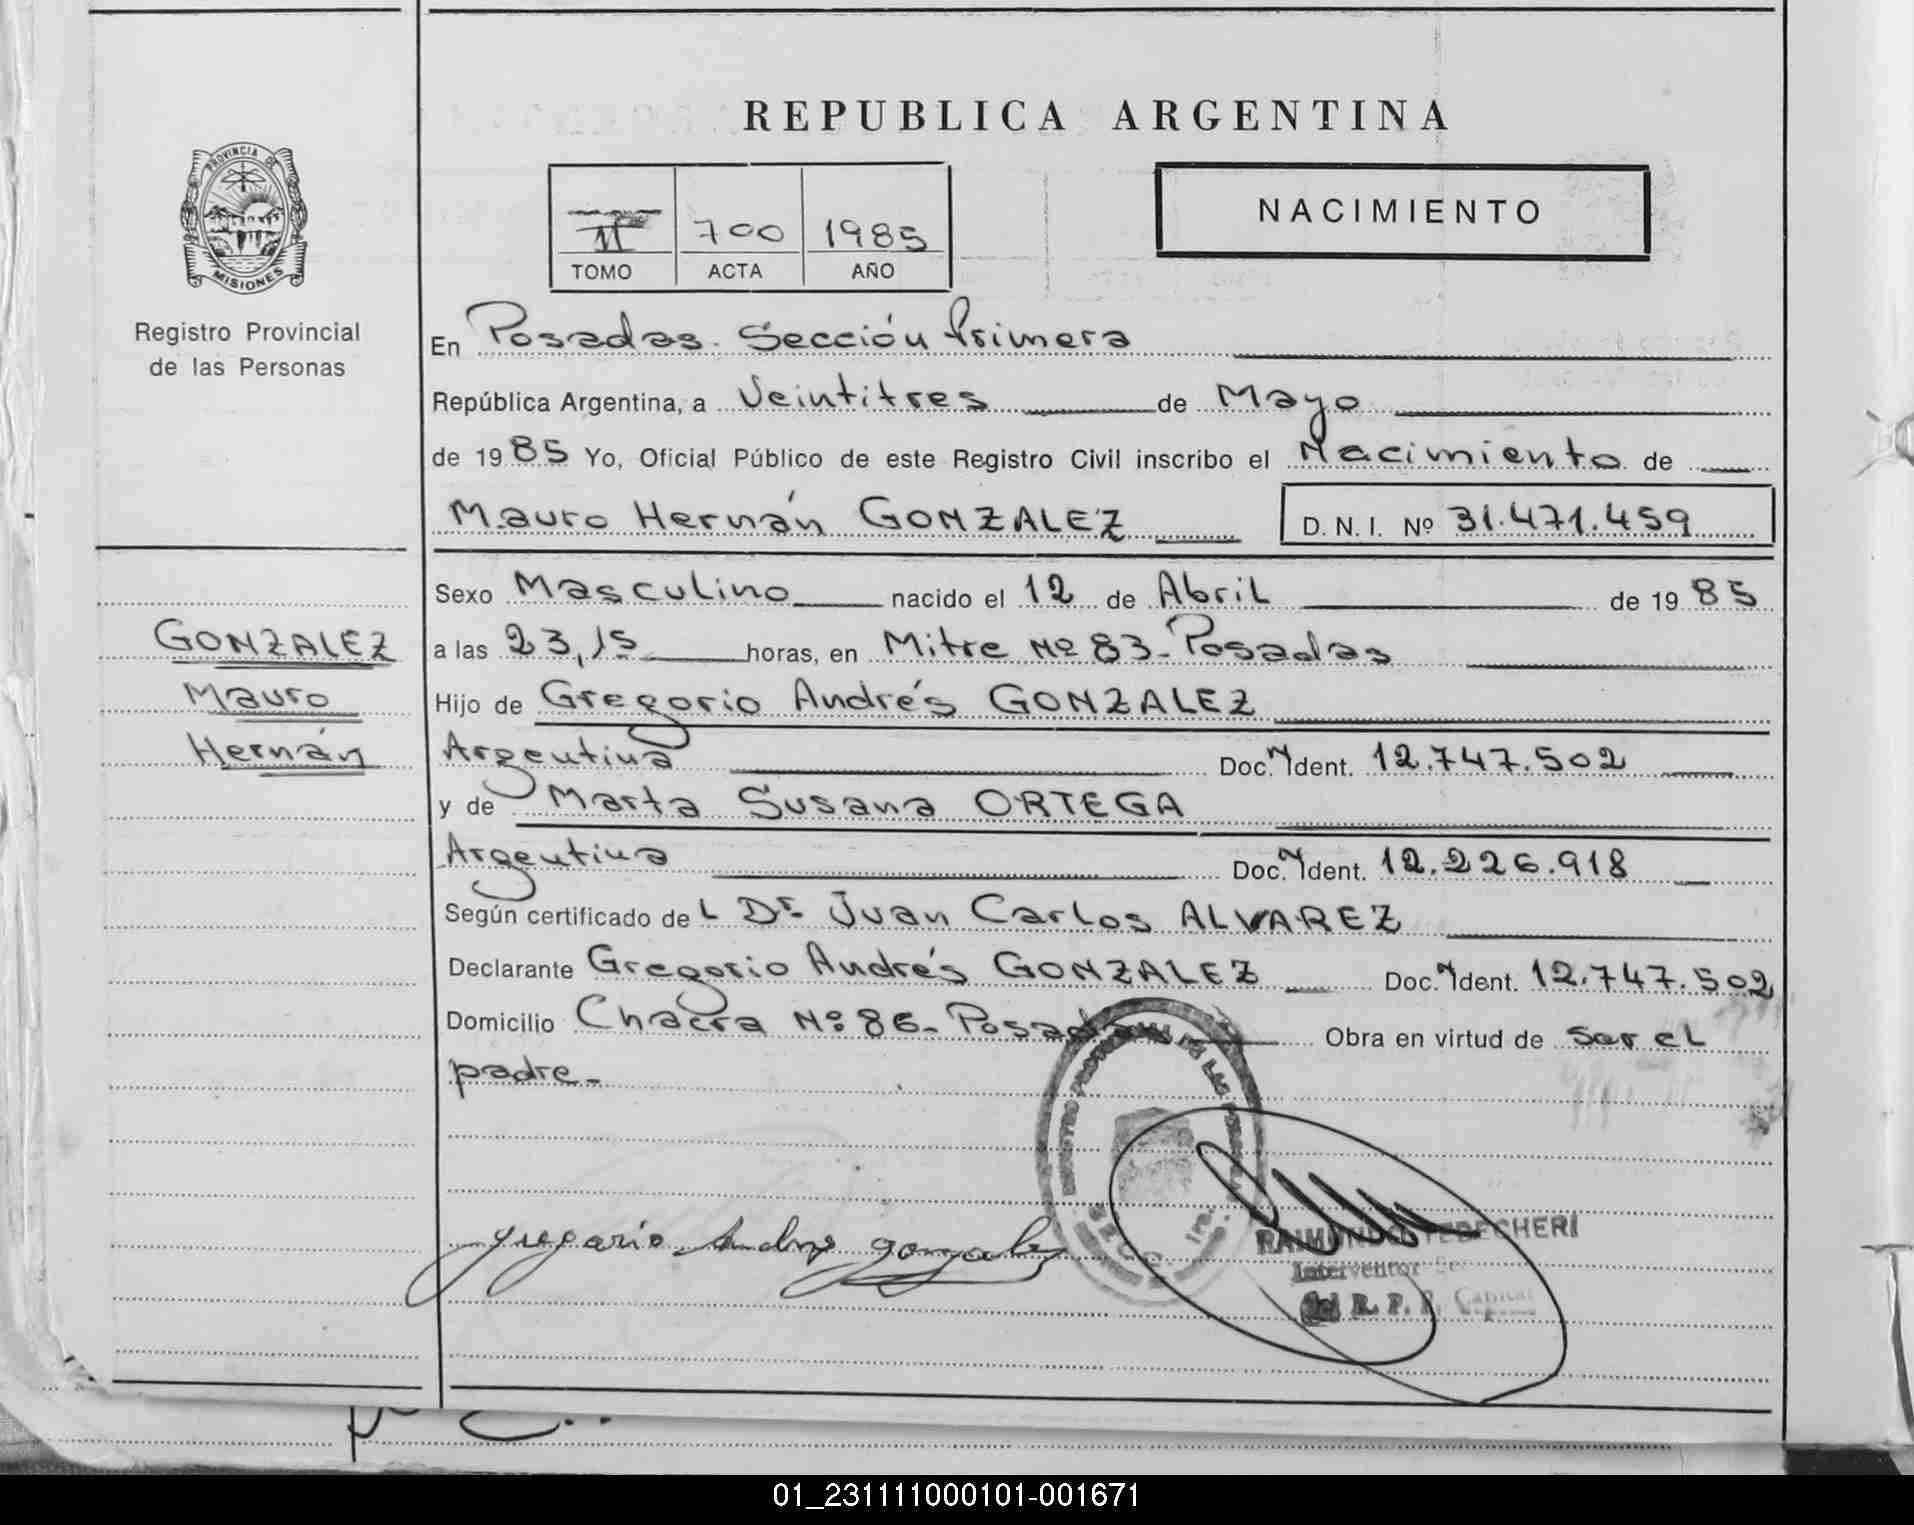 REPUBLICA ARGENTINA
PROVINCIA DE
MISIONES
Registro Provincial
de las Personas
II 700 1985
TOMO ACTA AÑO
NACIMIENTO
En Posadas. Sección Primera
República Argentina, a Veintitres de Mayo
de 1985 Yo, Oficial Público de este Registro Civil inscribo el Nacimiento de
Mauro Hernán GONZALEZ D. N. I. Nº 31.471.459
Sexo Masculino nacido el 12 de Abril de 1985
GONZALEZ
Mauro
Hernán
a las 23,15 horas, en Mitre Nº 83- Posadas
Hijo de Gregorio Andrés GONZALEZ
Argentina Doc. N Ident. 12.747.502
y de Marta Susana ORTEGA
Argentina Doc. N Ident. 12.226.918
Según certificado de L Dr. Juan Carlos ALVAREZ
Declarante Gregorio Andrés GONZALEZ Doc. N Ident. 12.747.502
Domicilio Chacra Nº 86- Posadas Obra en virtud de ser el
padre-
gregorio Andres gonzalez
RAIMUNDO
Interventor
del R. P. P. Capital
01_231111000101-001671